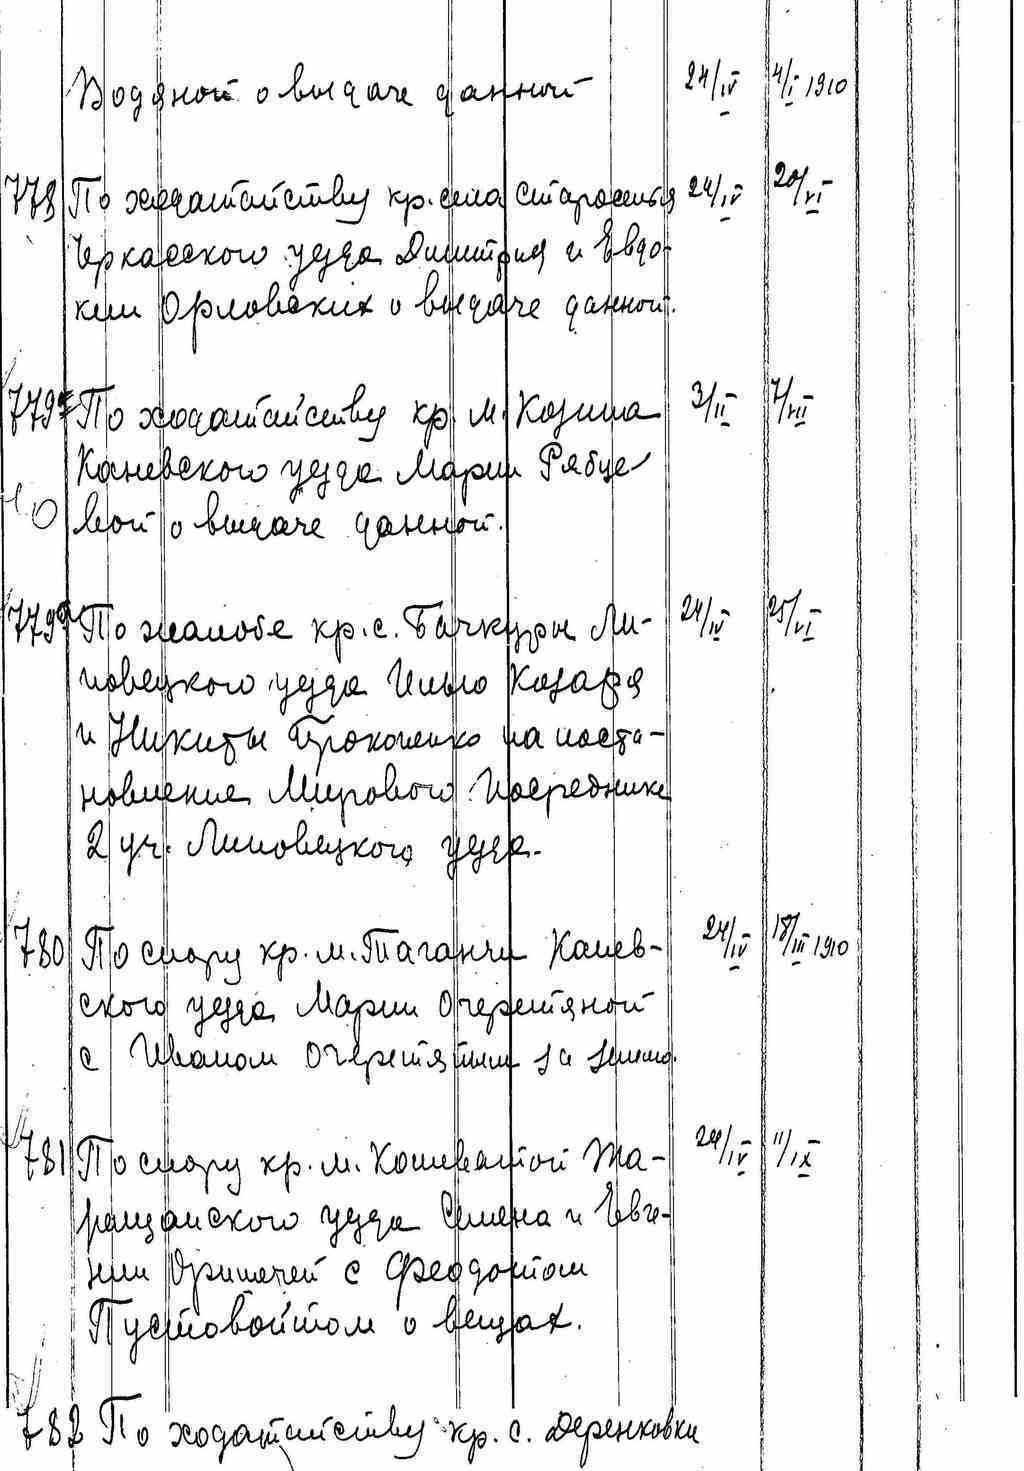 Водяной о выдаче данной 24/IV 4/I 1910
778 По ходатайству кр. села Староселья 24/IV 20/VI
Черкасского уезда Димитрия и Евдо-
кии Орловских о выдаче данной.
779 По ходатайству кр. м. Козина 3/II 7/VII
Каневского уезда Марии Рябце
вой о выдаче данной.
779 По жалобе кр. с. Бачкуры Ли- 24/IV 25/VI
повецкого уезда Ильи Козаря
и Никиты Прокопенко на поста-
новление Мирового Посредника
2 уч. Липовецкого уезда.
780 По спору кр. м. Таганчи Канев- 24/IV 18/III 1910
ского уезда Марии Очеретяной
с Иваном Очеретяным за землю.
781 По спору кр. м. Кошеватой Та- 24/IV 11/IX
ращанского уезда Семена и Евге-
нии с Феодотом
Пустовойтом о вещах.
782 По ходатайству кр. с. Деренковки